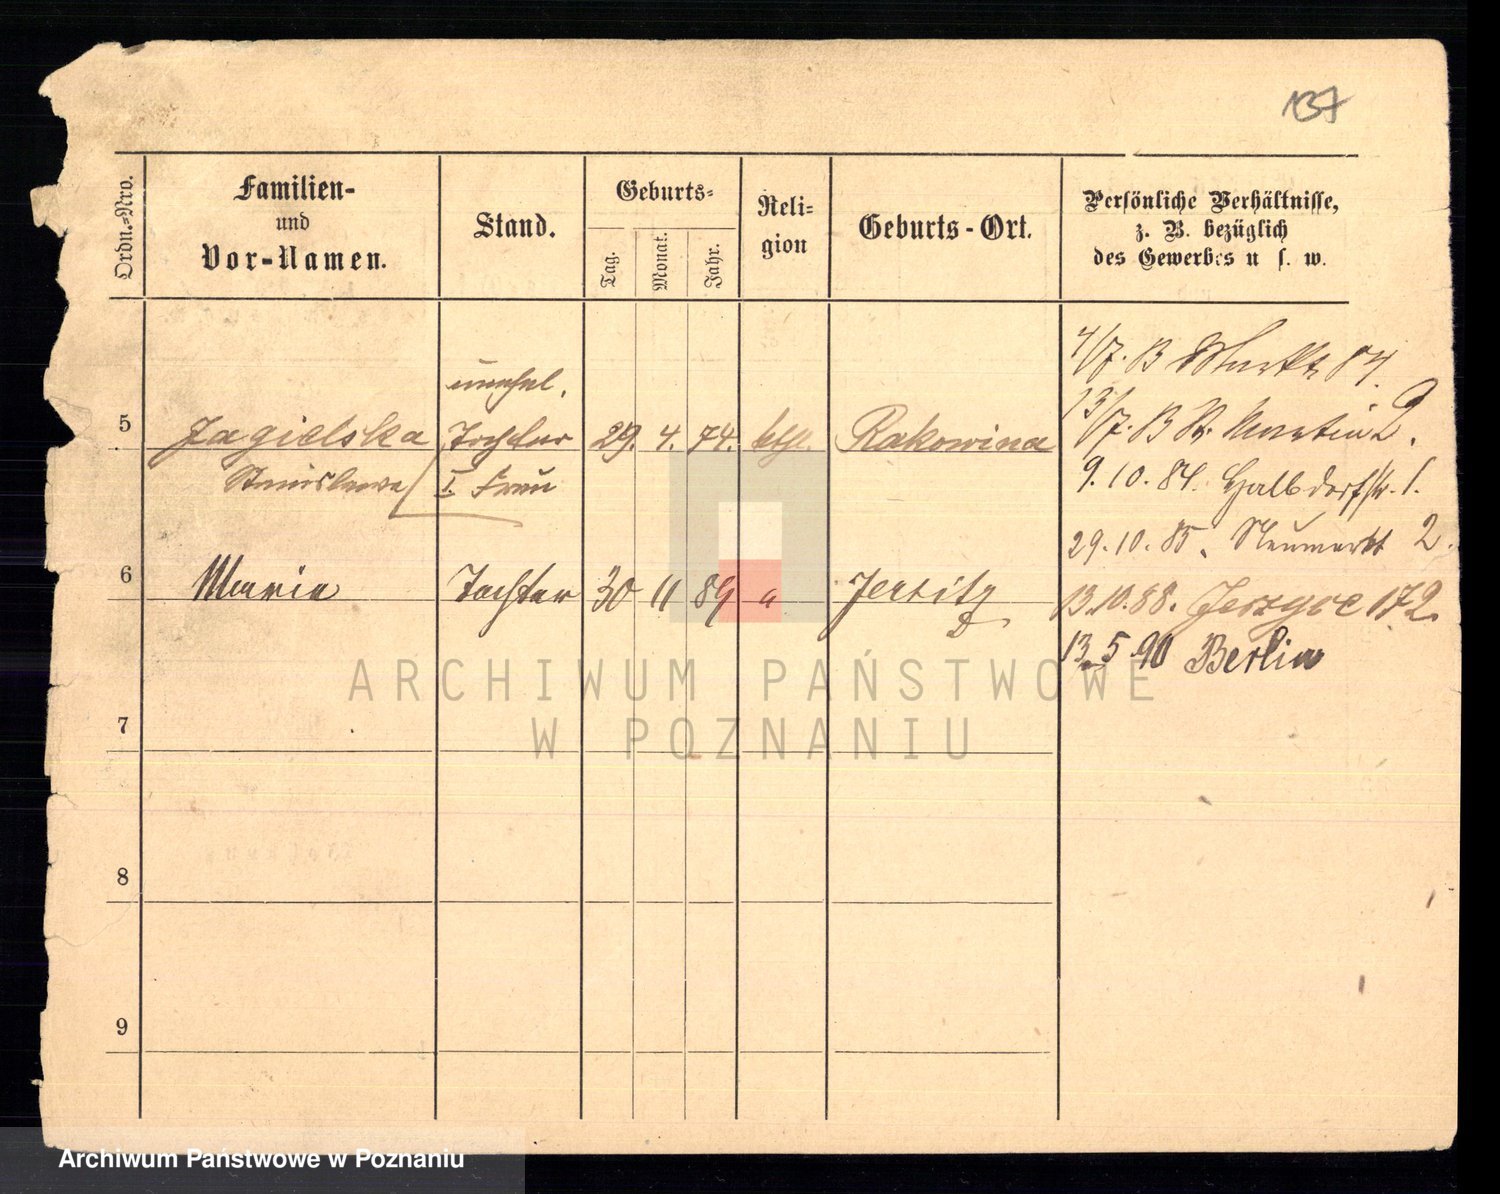 137
Ordn.-Nro.
Familien-
und
Vor-Namen.
Stand.
Geburts-
Tag.
Monat.
Jahr.
Reli-
gion
Geburts-Ort.
Persönliche Verhältnisse,
z. B. bezüglich
des Gewerbes u s. w.
4/7. B Markt 84.
unehel.
13/7. B St. Martin 2.
5 Jagielska Tochter 29. 4. 74. kth. Rakowina
Stanislawa I. Frau
9. 10. 84. Halbdorfstr. 1.
29. 10. 85. Neumarkt 2.
6 Marie Tochter 30 11 89 a Jersitz
13. 10. 88. Jerzyce 172.
13. 5 90 Berlin
7
8
9
ARCHIWUM PAŃSTWOWE
W POZNANIU
Archiwum Państwowe w Poznaniu